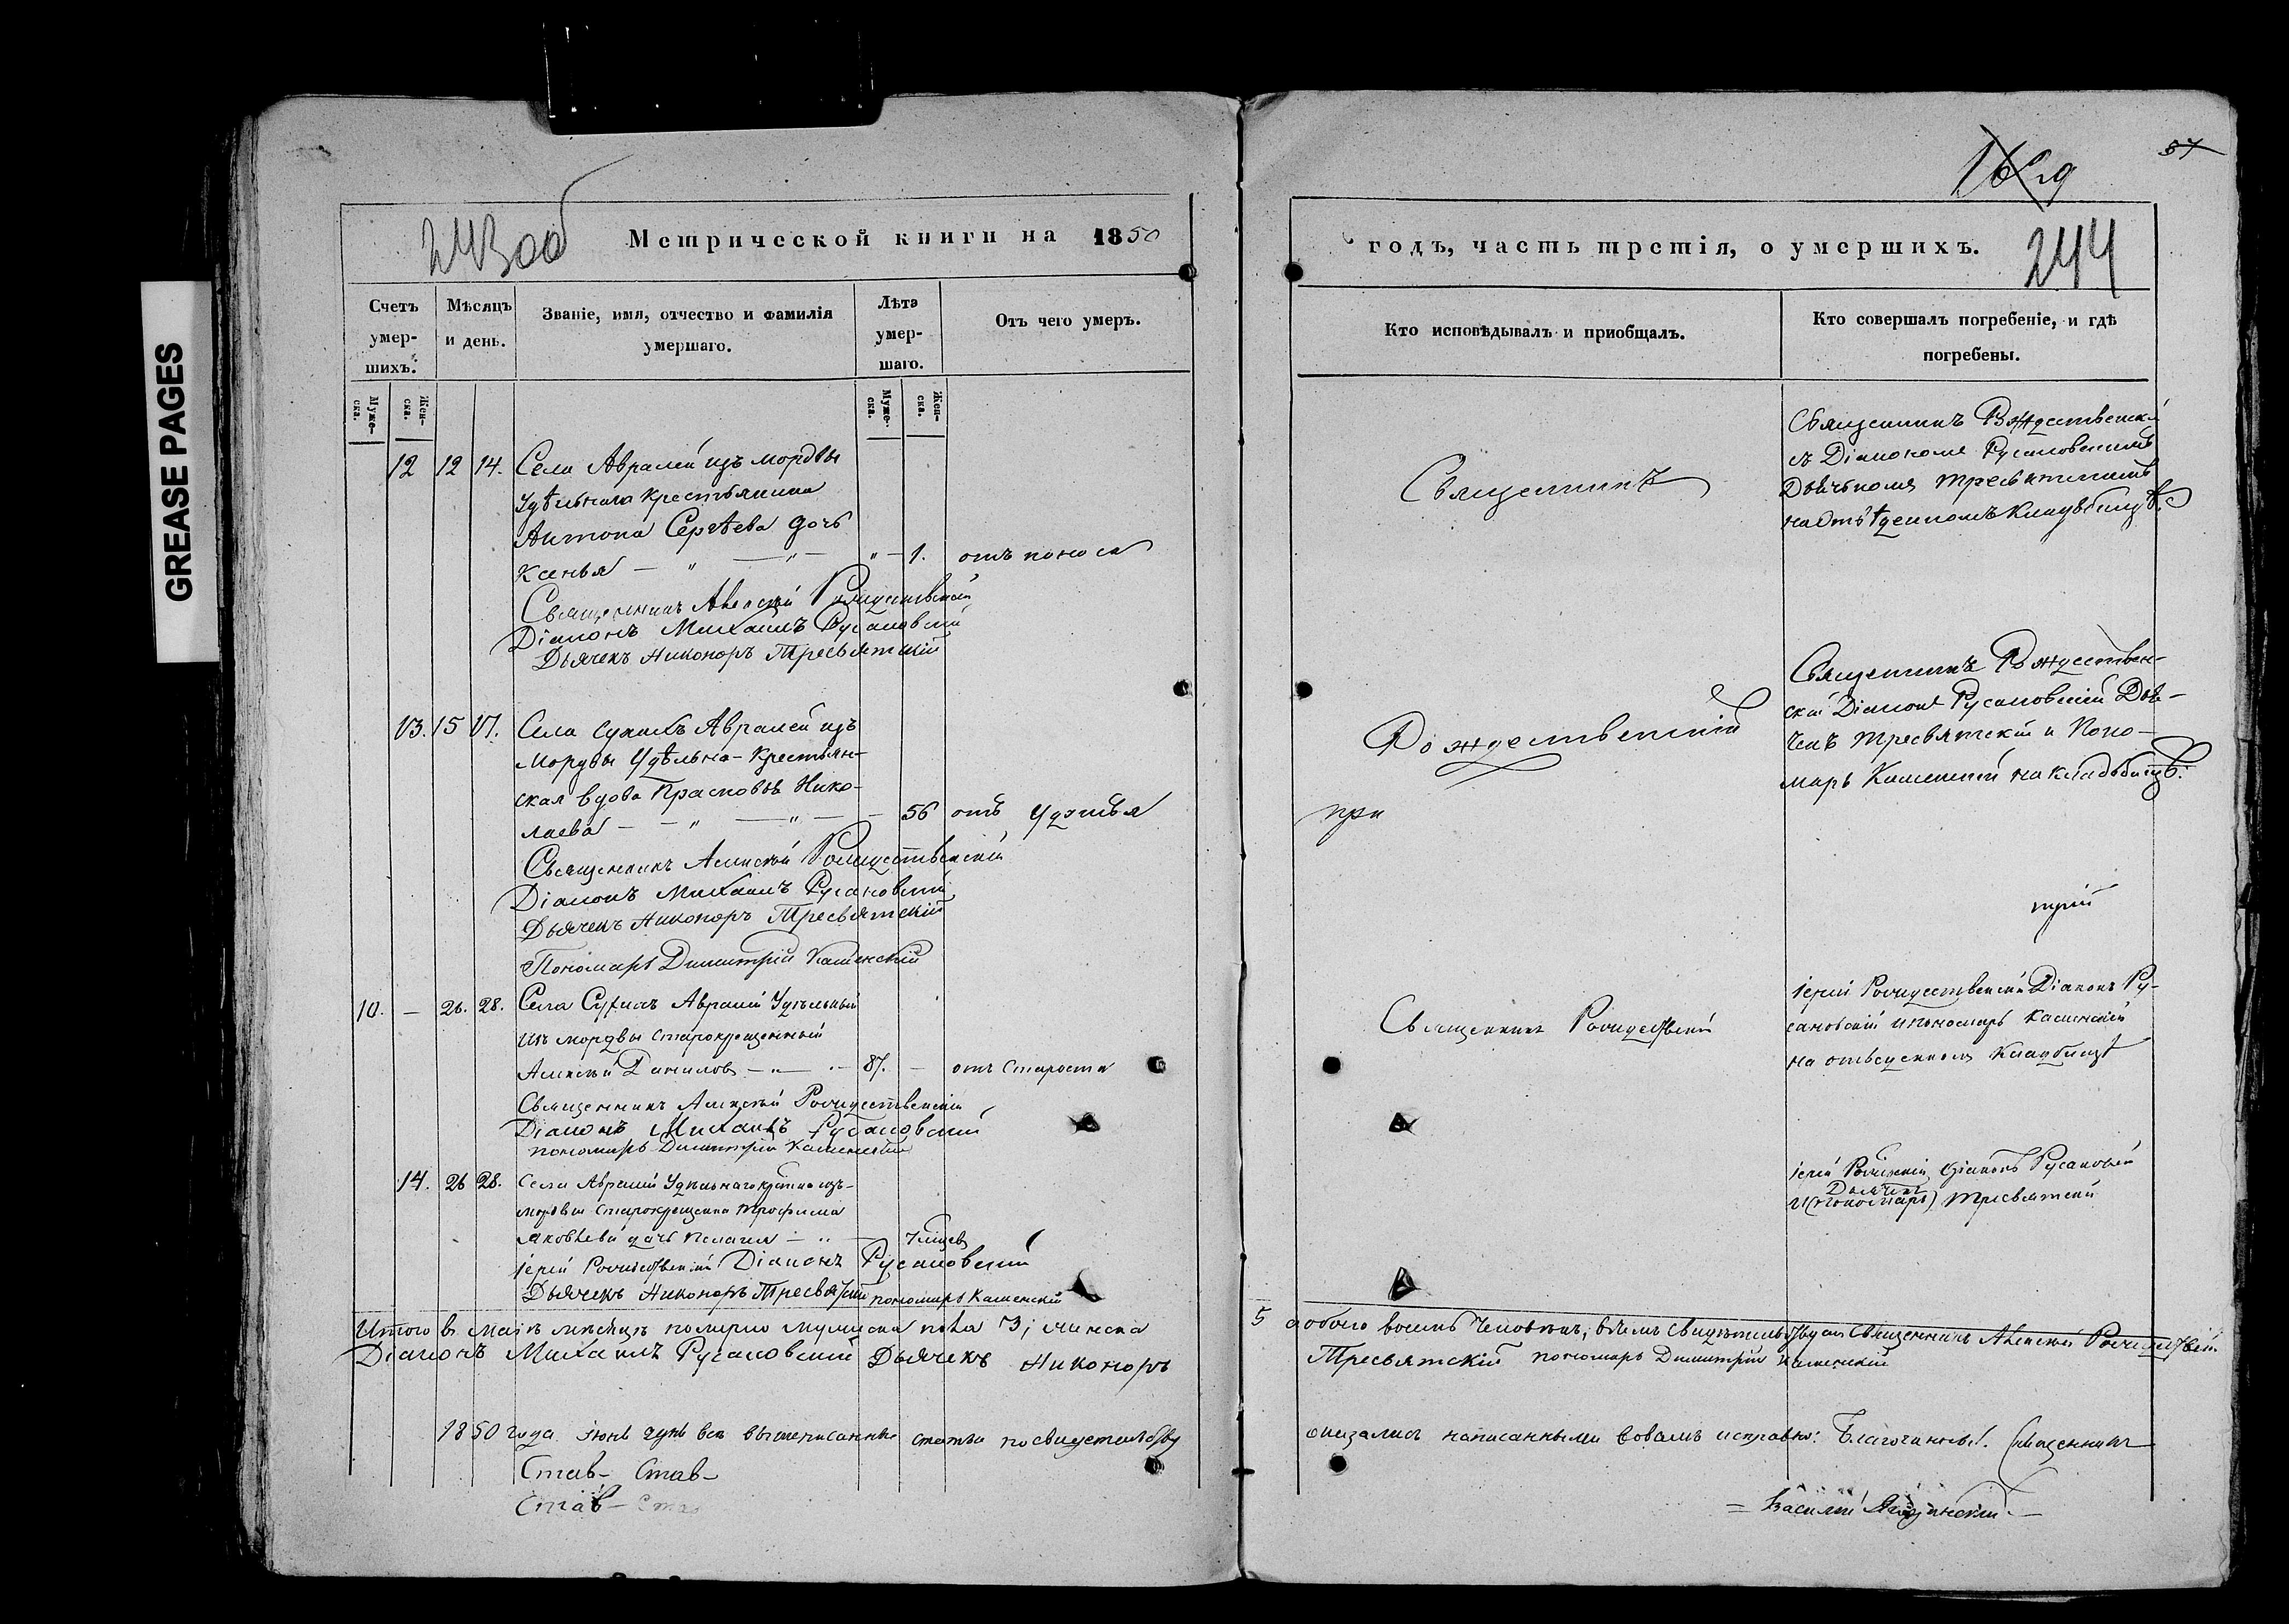 GREASE PAGES
243об
Метрической книги на 1850
Счетъ умер-шихъ.
Мѣсяцъ и день.
Званіе, имя, отчество и фамилія умершаго.
Лѣта умер-шаго.
Отъ чего умеръ.
Муже-ска.
Жен-ска.
Муже-ска.
Жен-ска.
12 12 14. Села Авралей изъ мордвы
Удѣльнаго крестьянина
Антона Сергѣева дочь
Ксенья — " — " — " — 1. отъ поноса
Священникъ Алексѣй Рождественскій
Діаконъ Михаилъ Русановскій
Дьячекъ Никоноръ Тресвятскій
13. 15 17. Села Сухихъ Авралей изъ
мордвы Удѣльно-Крестьян-
ская вдова Прасковья Нико-
лаева — " — " — 56 отъ удушья
Священникъ Алексѣй Рождественскій
Діаконъ Михаилъ Русановскій
Дьячекъ Никоноръ Тресвятскій
Пономарь Димитрій Каменскій
10. — 26. 28. Села Сухихъ Авралей Удѣльный
изъ мордвы старокрещенный
Алексѣй Даниловъ — " — 87. — отъ старости
Священникъ Алексѣй Рождественскій
Діаконъ Михаилъ Русановскій
пономарь Димитрій Каменскій
14. 26 28. Села Авралей Удѣльнаго изъ
мордвы старокрещенна Трофима
Яковлева дочь Пелагея — " —
іерей Рождественскій Діаконъ Русановскій
Дьячекъ Никоноръ Тресвятскій пономарь Каменскій
Итого въ маіѣ мѣсяцѣ померло мужеска пола 3, женска
Діаконъ Михаилъ Русановскій Дьячекъ Никоноръ
1850 года іюнь дня всѣ вышеписанные статьи по свидетельству
Став- Став-
Став-
57
244
годъ, часть третія, о умершихъ.
Кто исповѣдывалъ и приобщалъ.
Кто совершалъ погребеніе, и гдѣ погребены.
Священникъ
Священникъ Рождественскій
съ Діакономъ Русановскимъ
Дьячькомъ Тресвятскимъ
на отвѣденномъ кладбищѣ.
Рождественскій
при
Священникъ Рождествен-
скій Діаконъ Русановскій Дья-
чекъ Тресвятскій и Поно-
марь Каменскій на кладбищѣ.
трій
Священникъ Рождественскій
іерей Рождественскій Діаконъ Ру-
сановскій и пономарь Каменскій
на отведенномъ кладбищѣ
іерей діаконъ Русановскій
Дьячекъ
и (пономарь) Тресвятскій
5 а обоего восемь человѣкъ; въ чемъ свидѣтельствуемъ Священникъ Алексѣй Рождественскій
Тресвятскій пономарь Димитрій Каменскій
оказались написанными исправно: Благочинный Священникъ
= Василій